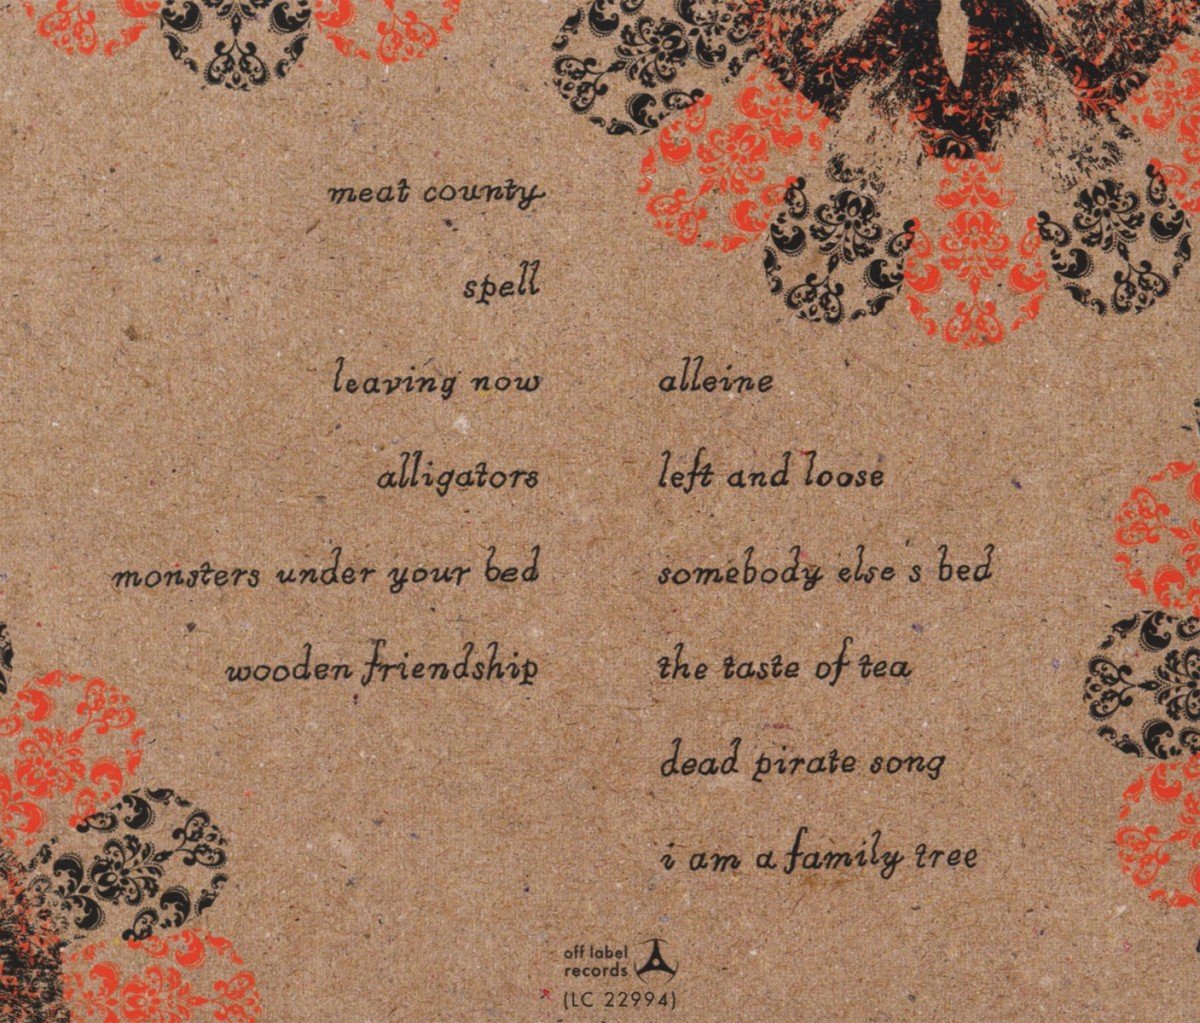 meat county
spell
leaving now
alligators
monsters under your bed
wooden friendship
alleine
left and loose
somebody else s bed
the taste of tea
dead pirate song
i am a family tree
off label
records
(LC 22994)